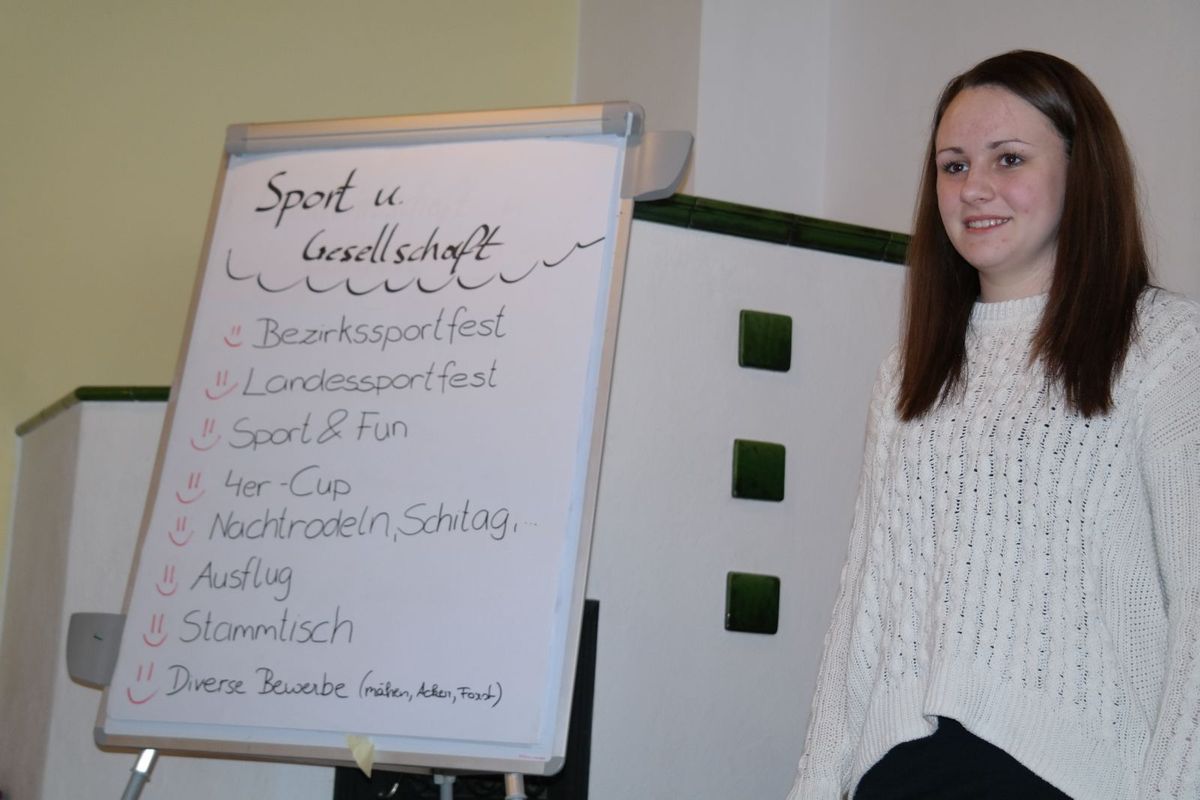 Sport u.
Gesellschaft
Bezirkssportfest
Landessportfest
Sport & Fun
4er-Cup
Nachtrodeln, Schitag, ...
Ausflug
Stammtisch
Diverse Bewerbe (mähen, Acker, Forst)